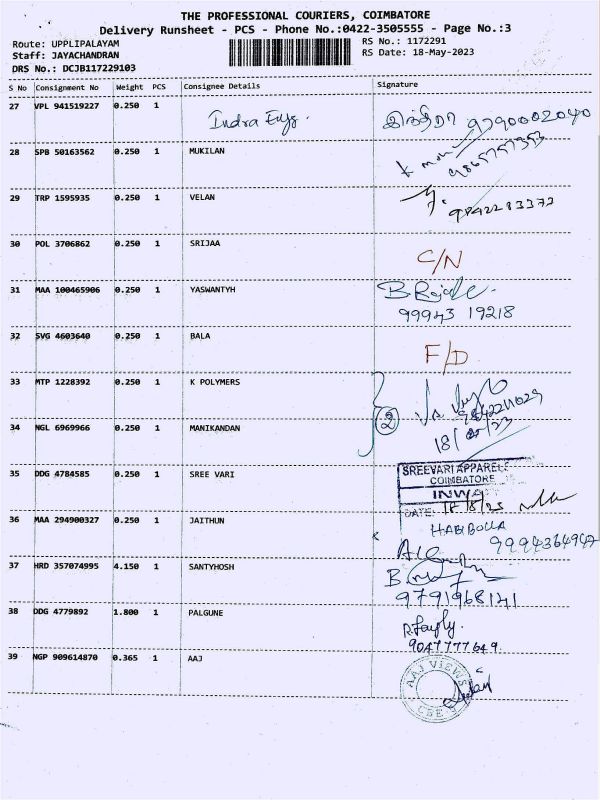 THE PROFESSIONAL COURIERS, COIMBATORE
Delivery Runsheet - PCS - Phone No.:0422-3505555 - Page No.:3
Route: UPPLIPALAYAM RS No.: 1172291
Staff: JAYACHANDRAN RS Date: 18-May-2023
DRS No.: DCJB117229103
S No Consignment No Weight PCS Consignee Details Signature
27 VPL 941519227 0.250 1 Indra Engs. இந்திரா 9790002040
28 SPB 50163562 0.250 1 MUKILAN
9865757353
29 TRP 1595935 0.250 1 VELAN
9842283373
30 POL 3706862 0.250 1 SRIJAA C/N
31 MAA 100465906 0.250 1 YASWANTYH
99943 19218
32 SVG 4603640 0.250 1 BALA F/D
33 MTP 1228392 0.250 1 K POLYMERS
2
34 NGL 6969966 0.250 1 MANIKANDAN
35 DDG 4784585 0.250 1 SREE VARI SREEVARI APPARELS
COIMBATORE
INWA
DATE:
36 MAA 294900327 0.250 1 JAITHUN HABIBULLA
9994364947
37 HRD 357074995 4.150 1 SANTYHOSH
9791968141
38 DDG 4779892 1.800 1 PALGUNE
9047777649
39 NGP 909614870 0.365 1 AAJ AAJ VIEWS
CBE